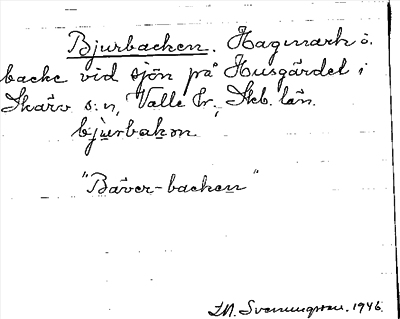 Bjurbacken. Hagmark o.
backe vid sjön på Husgärdet i
Skärv s:n, Valle hr., Skb. län.
bjurbakən
"Bäver-backen"
I.M. Svenungsson. 1946.